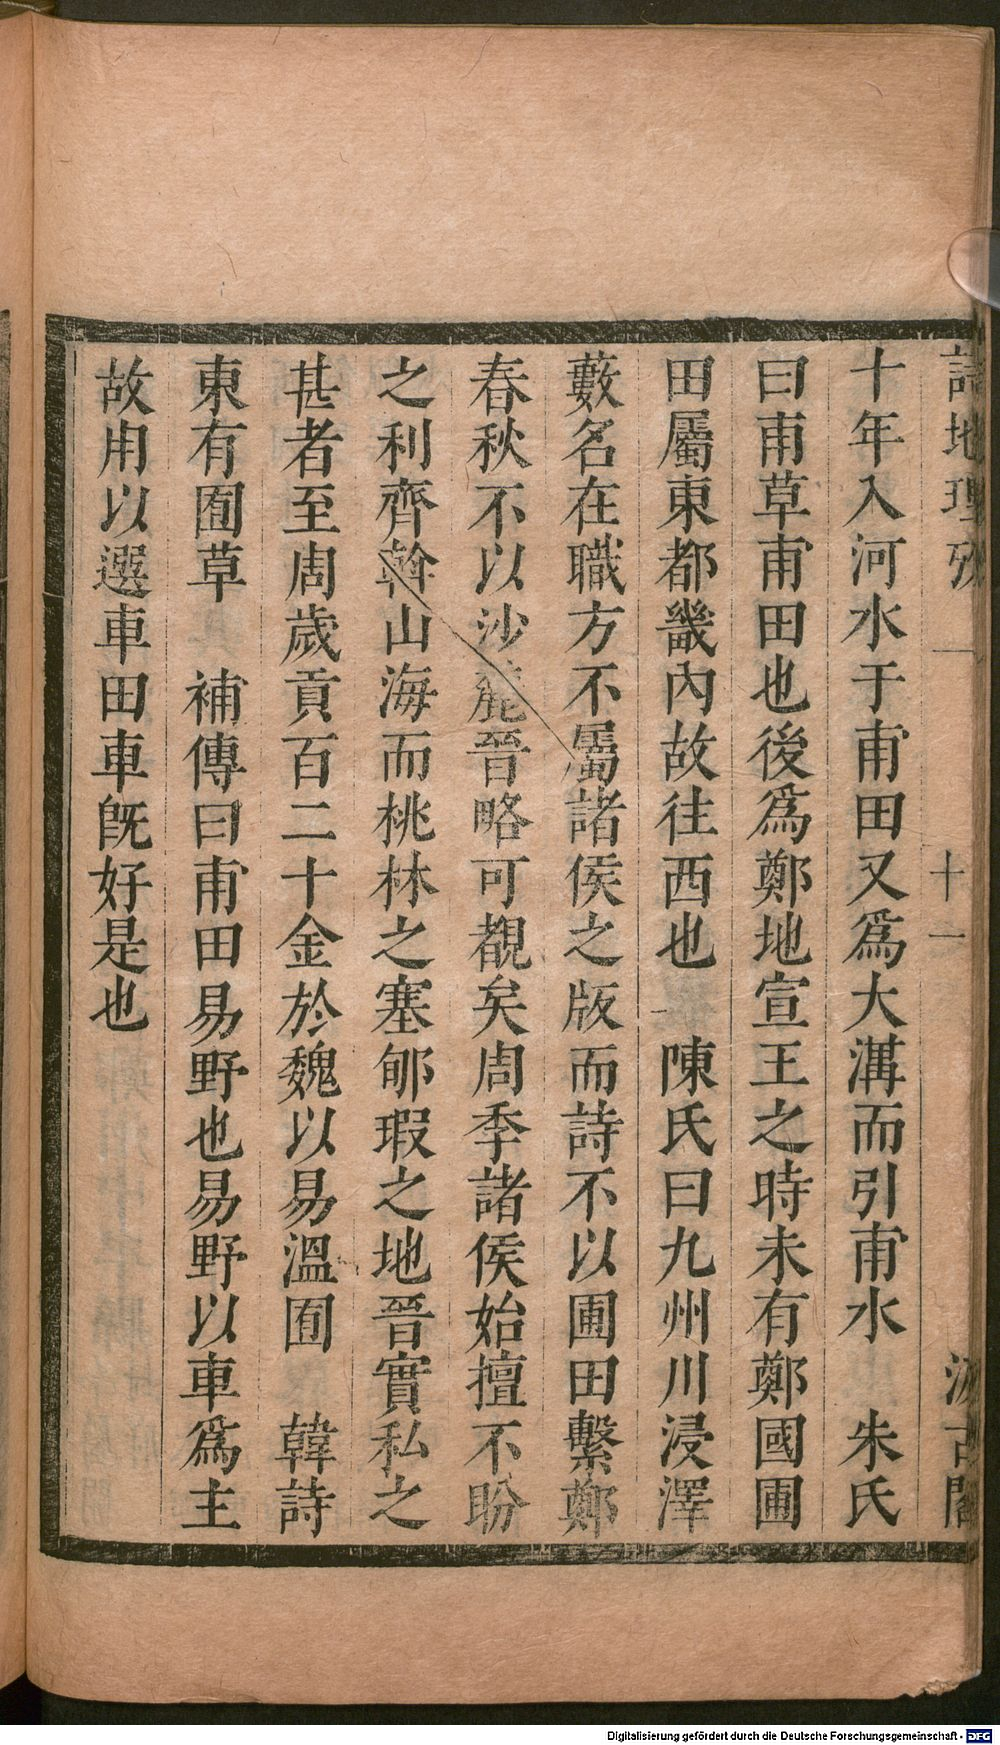 詩地理攷 一 十一 汲古閣
十年入河水于甫田又爲大溝而引甫水 朱氏
曰甫草甫田也後爲鄭地宣王之時未有鄭國圃
田屬東都畿內故往西也 陳氏曰九州川浸澤
藪名在職方不屬諸侯之版而詩不以圃田繫鄭
春秋不以沙麓晉略可覩矣周季諸侯始擅不盼
之利齊斡山海而桃林之塞郇瑕之地晉實私之
甚者至周歲貢百二十金於魏以易溫囿 韓詩
東有囿草 補傳曰甫田易野也易野以車爲主
故用以選車田車旣好是也
Digitalisierung gefördert durch die Deutsche Forschungsgemeinschaft - DFG